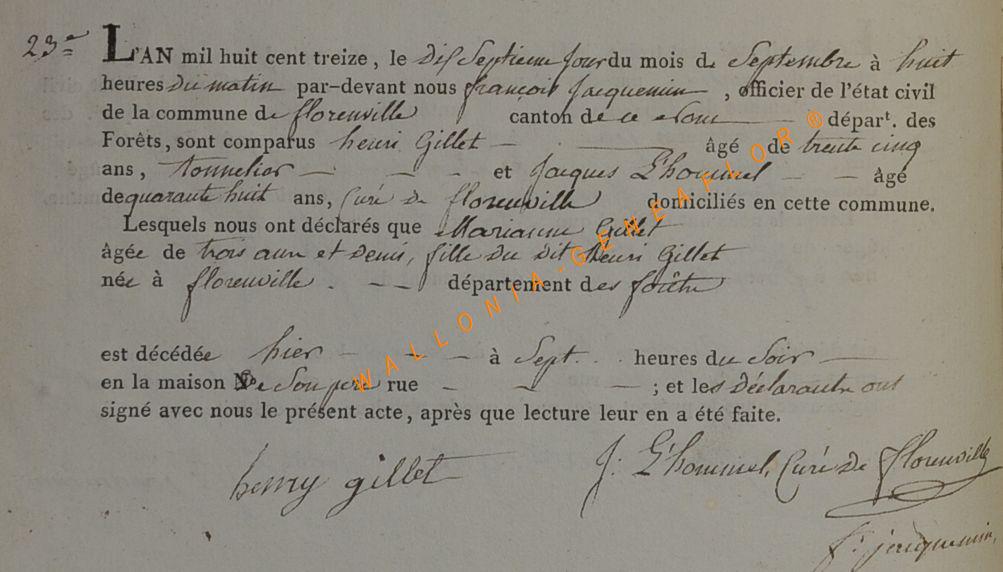 23e
L'AN mil huit cent treize, le dix Septieme jour du mois de Septembre à huit
heures du matin par-devant nous françois Jacquemin, officier de l'état civil
de la commune de florenville canton de ce nom départt. des
Forêts, sont comparus henri Gillet âgé de trente cinq
ans, tonnelier et Jacques L'hommel âgé
de quarante huit ans, Curé de florenville domiciliés en cette commune.
Lesquels nous ont déclarés que Marianne Gillet
âgée de trois ans et demi, fille du dit henri Gillet
née à florenville département des
est décédée hier à Sept heures du Soir
en la maison de Son pere rue ; et les déclarants ont
signé avec nous le présent acte, après que lecture leur en a été faite.
henry gillet
J. L'hommel, Curé de florenville
f. jacquemin
WALLONIA-GENEAFLOR®